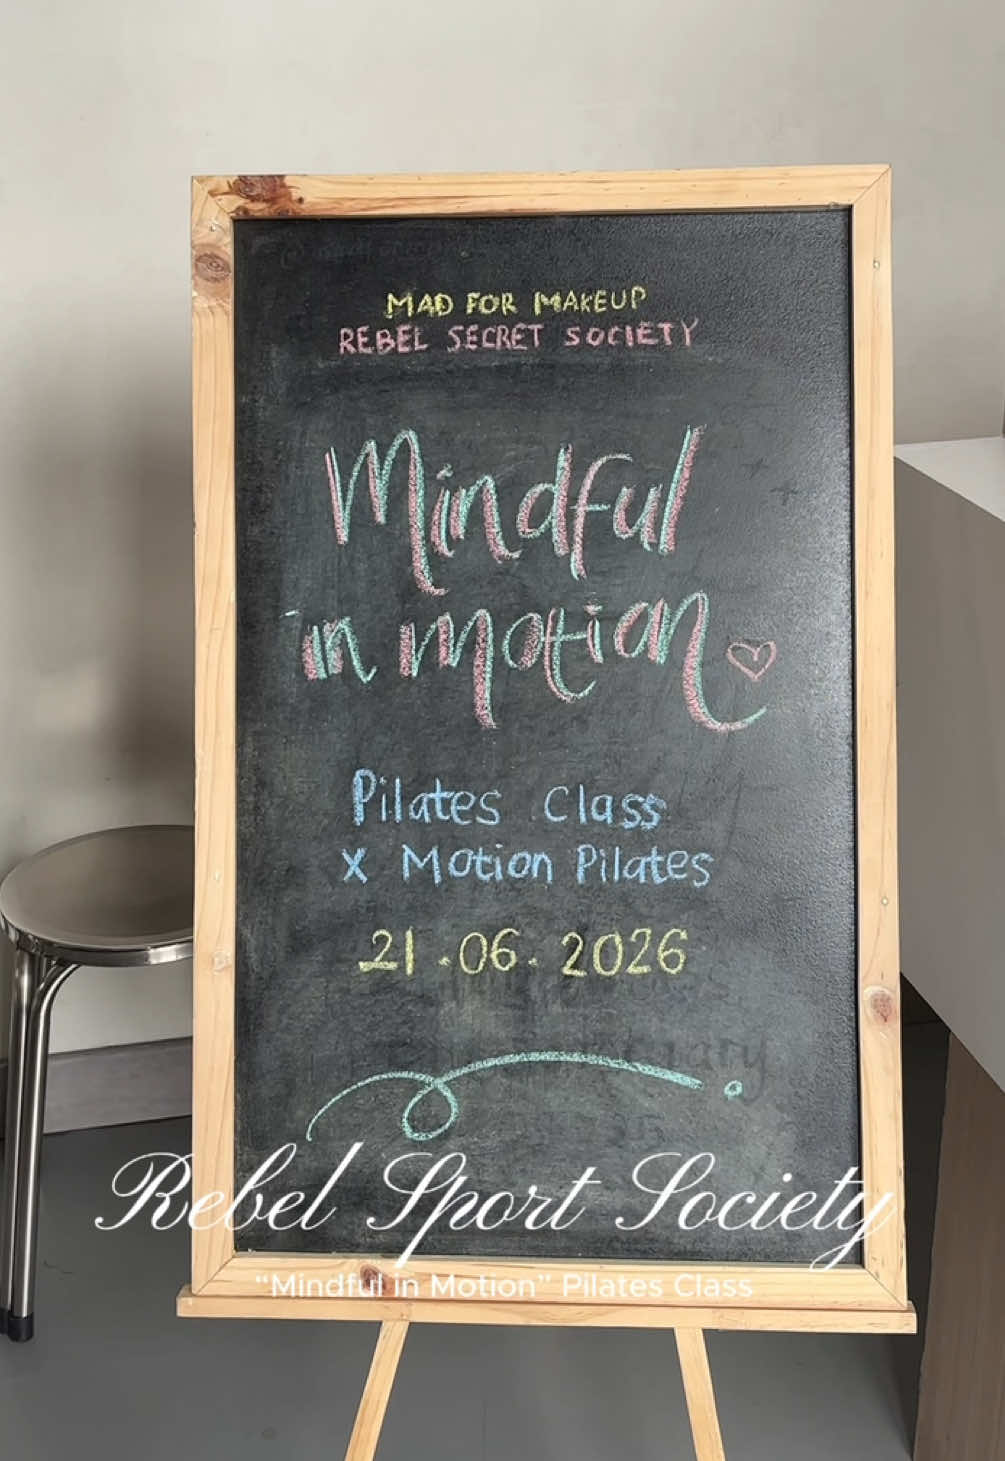 MAD FOR MAKEUP
REBEL SECRET SOCIETY
Mindful
in motion
Pilates Class
x Motion Pilates
21.06.2026
Rebel Sport Society
“Mindful in Motion” Pilates Class